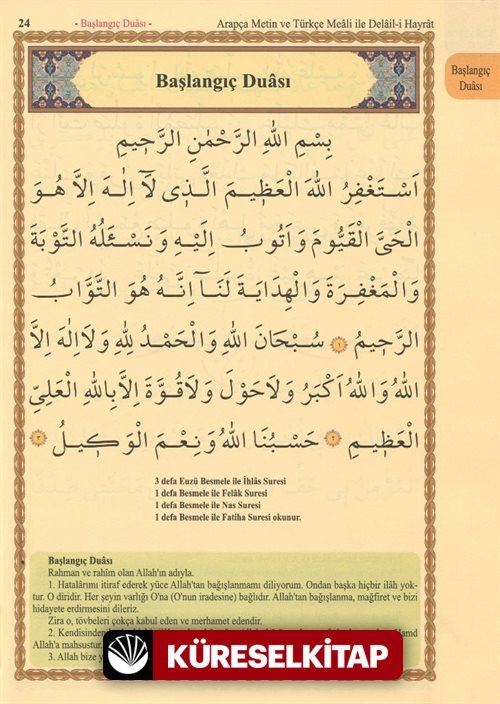 24
- Başlangıç Duâsı -
Arapça Metin ve Türkçe Meâli ile Delâil-i Hayrât
Başlangıç
Duâsı
Başlangıç Duâsı
بِسْمِ اللهِ الرَّحْمٰنِ الرَّح۪يمِ
اَسْتَغْفِرُ اللهَ الْعَظ۪يمَ الَّذ۪ي لَآ اِلٰهَ اِلَّا هُوَ
الْحَيَّ الْقَيُّومَ وَاَتُوبُ اِلَيْهِ وَنَسْئَلُهُ التَّوْبَةَ
وَالْمَغْفِرَةَ وَالْهِدَايَةَ لَنَآ اِنَّهُ هُوَ التَّوَّابُ
الرَّح۪يمُ ١ سُبْحَانَ اللهِ وَالْحَمْدُ لِلّٰهِ وَلَا اِلٰهَ اِلَّا
اللهُ وَاللهُ اَكْبَرُ وَلَاحَوْلَ وَلَاقُوَّةَ اِلَّا بِاللهِ الْعَلِيِّ
الْعَظ۪يمِ ٢ حَسْبُنَا اللهُ وَنِعْمَ الْوَك۪يلُ ٣
3 defa Euzü Besmele ile İhlâs Suresi
1 defa Besmele ile Felâk Suresi
1 defa Besmele ile Nas Suresi
1 defa Besmele ile Fatiha Suresi okunur.
Başlangıç Duâsı
Rahman ve rahîm olan Allah'ın adıyla.
1. Hatalarımı itiraf ederek yüce Allah'tan bağışlanmamı diliyorum. Ondan başka hiçbir ilâh yok-
tur. O diridir. Her şeyin varlığı O'na (O'nun iradesine) bağlıdır. Allah'tan bağışlanma, mağfiret ve bizi
hidayete erdirmesini dileriz.
Zira o, tövbeleri çokça kabul eden ve merhamet edendir.
2. Kendisinden
Hamd
Allah'a mahsustur.
3. Allah bize
KÜRESELKİTAP